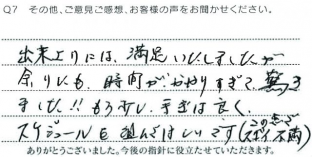 Q7 その他、ご意見ご感想、お客様の声をお聞かせください。
出来上りには、満足いたしましたが
余りにも、時間がかかりすぎて、驚き
ました!! もう少し、手ぎわ良く、
スケジュールを組んでほしいです(この点で
不満)
ありがとうございました。今後の指針に役立たせていただきます。